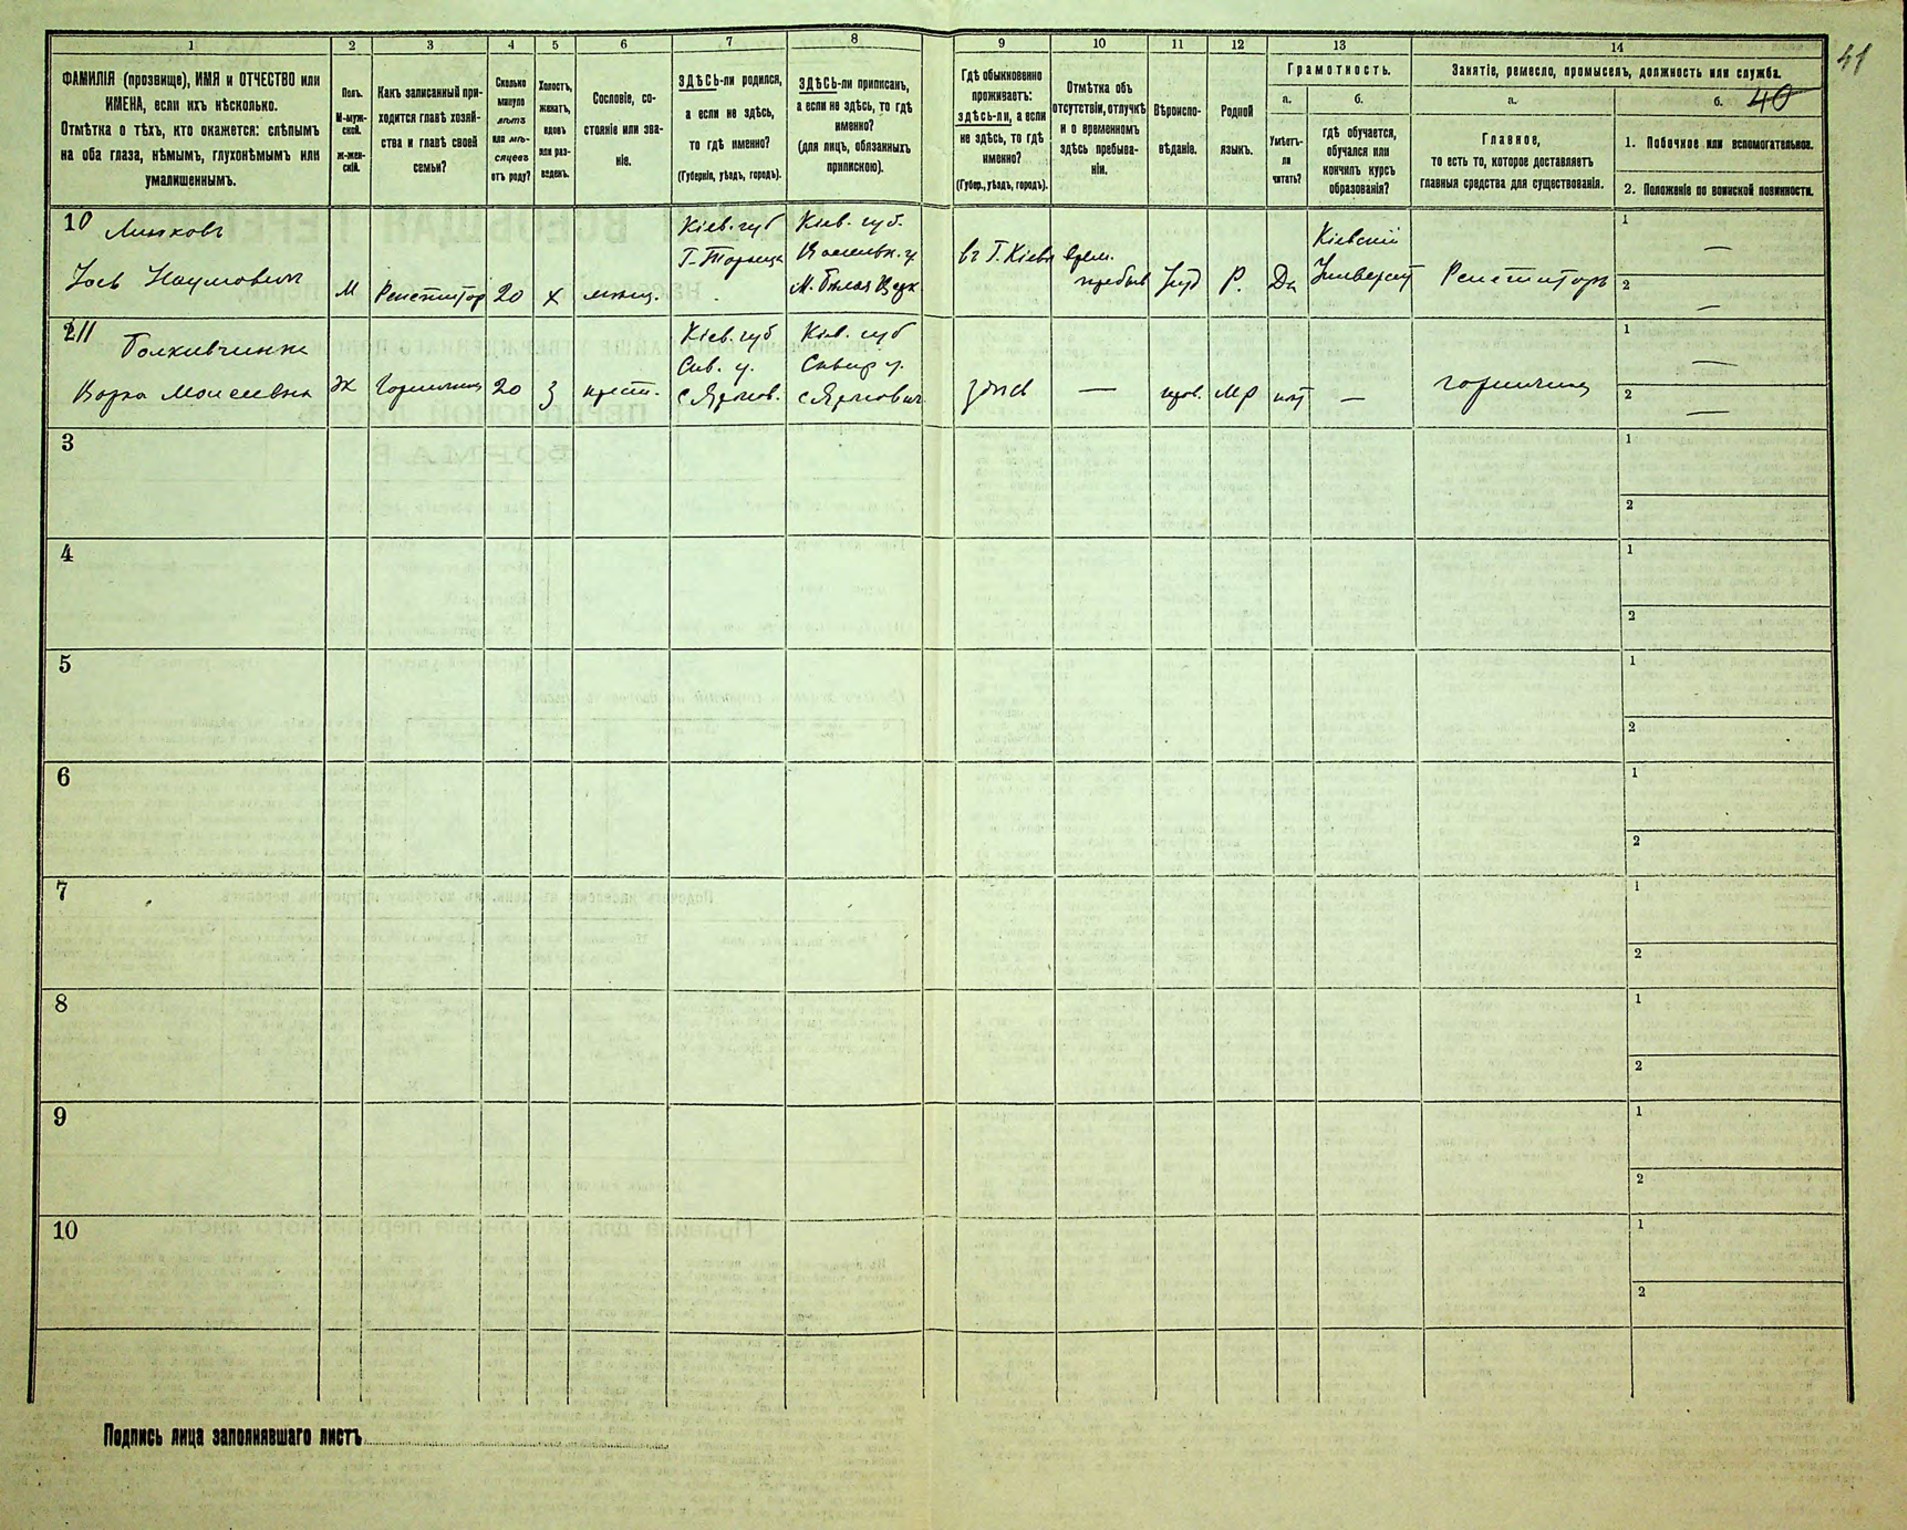 41
40
1 2 3 4 5 6 7 8 9 10 11 12 13 14
ФАМИЛІЯ (прозвище), ИМЯ и ОТЧЕСТВО или
ИМЕНА, если ихъ нѣсколько.
Отмѣтка о тѣхъ, кто окажется: слѣпымъ
на оба глаза, нѣмымъ, глухонѣмымъ или
умалишеннымъ.
Полъ.
М-муж-
ской.
Ж-жен-
скій.
Какъ записанный при-
ходится главѣ хозяй-
ства и главѣ своей
семьи?
Сколько
минуло
лѣтъ
или мѣ-
сяцевъ
отъ роду?
Холостъ,
женатъ,
вдовъ
или раз-
веденъ.
Сословіе, со-
стояніе или зва-
ніе.
ЗДѢСЬ-ли родился,
а если не здѣсь,
то гдѣ именно?
(Губернія, уѣздъ, городъ).
ЗДѢСЬ-ли приписанъ,
а если не здѣсь, то гдѣ
именно?
(для лицъ, обязанныхъ
припискою).
Гдѣ обыкновенно
проживаетъ:
здѣсь-ли, а если
не здѣсь, то гдѣ
именно?
(Губер., уѣздъ, городъ).
Отмѣтка объ
отсутствіи, отлучкѣ
и о временномъ
здѣсь пребыва-
ніи.
Вѣроиспо-
вѣданіе.
Родной
языкъ.
Грамотность.
а.
Умѣетъ-
ли
читать?
б.
гдѣ обучается,
обучался или
кончилъ курсъ
образованія?
Занятіе, ремесло, промыселъ, должность или служба.
а.
Главное,
то есть то, которое доставляетъ
главныя средства для существованія.
б.
1. Побочное или вспомогательное.
2. Положеніе по воинской повинности.
10
Линковъ
Іось Наумовичъ
М
Репетитор
20
х
мѣщ.
Кіев. губ
Кіев. губ.
М. Бѣлая Церк
въ Г. Кіевѣ
врем.
пребыв
Іуд
Р.
Да
Кіевскій
Университ
Репетиторъ
1 —
2 —
11
Варка Моисеевна
Ж
Горничная
20
З
крест.
Кіев. губ
Скв. у.
Кіев. губ
Сквир у.
здѣсь
—
прав.
МР
нѣт
—
горничная
1 —
2 —
3 1
2
4 1
2
5 1
2
6 1
2
7 1
2
8 1
2
9 1
2
10 1
2
Подпись лица заполнявшаго листъ